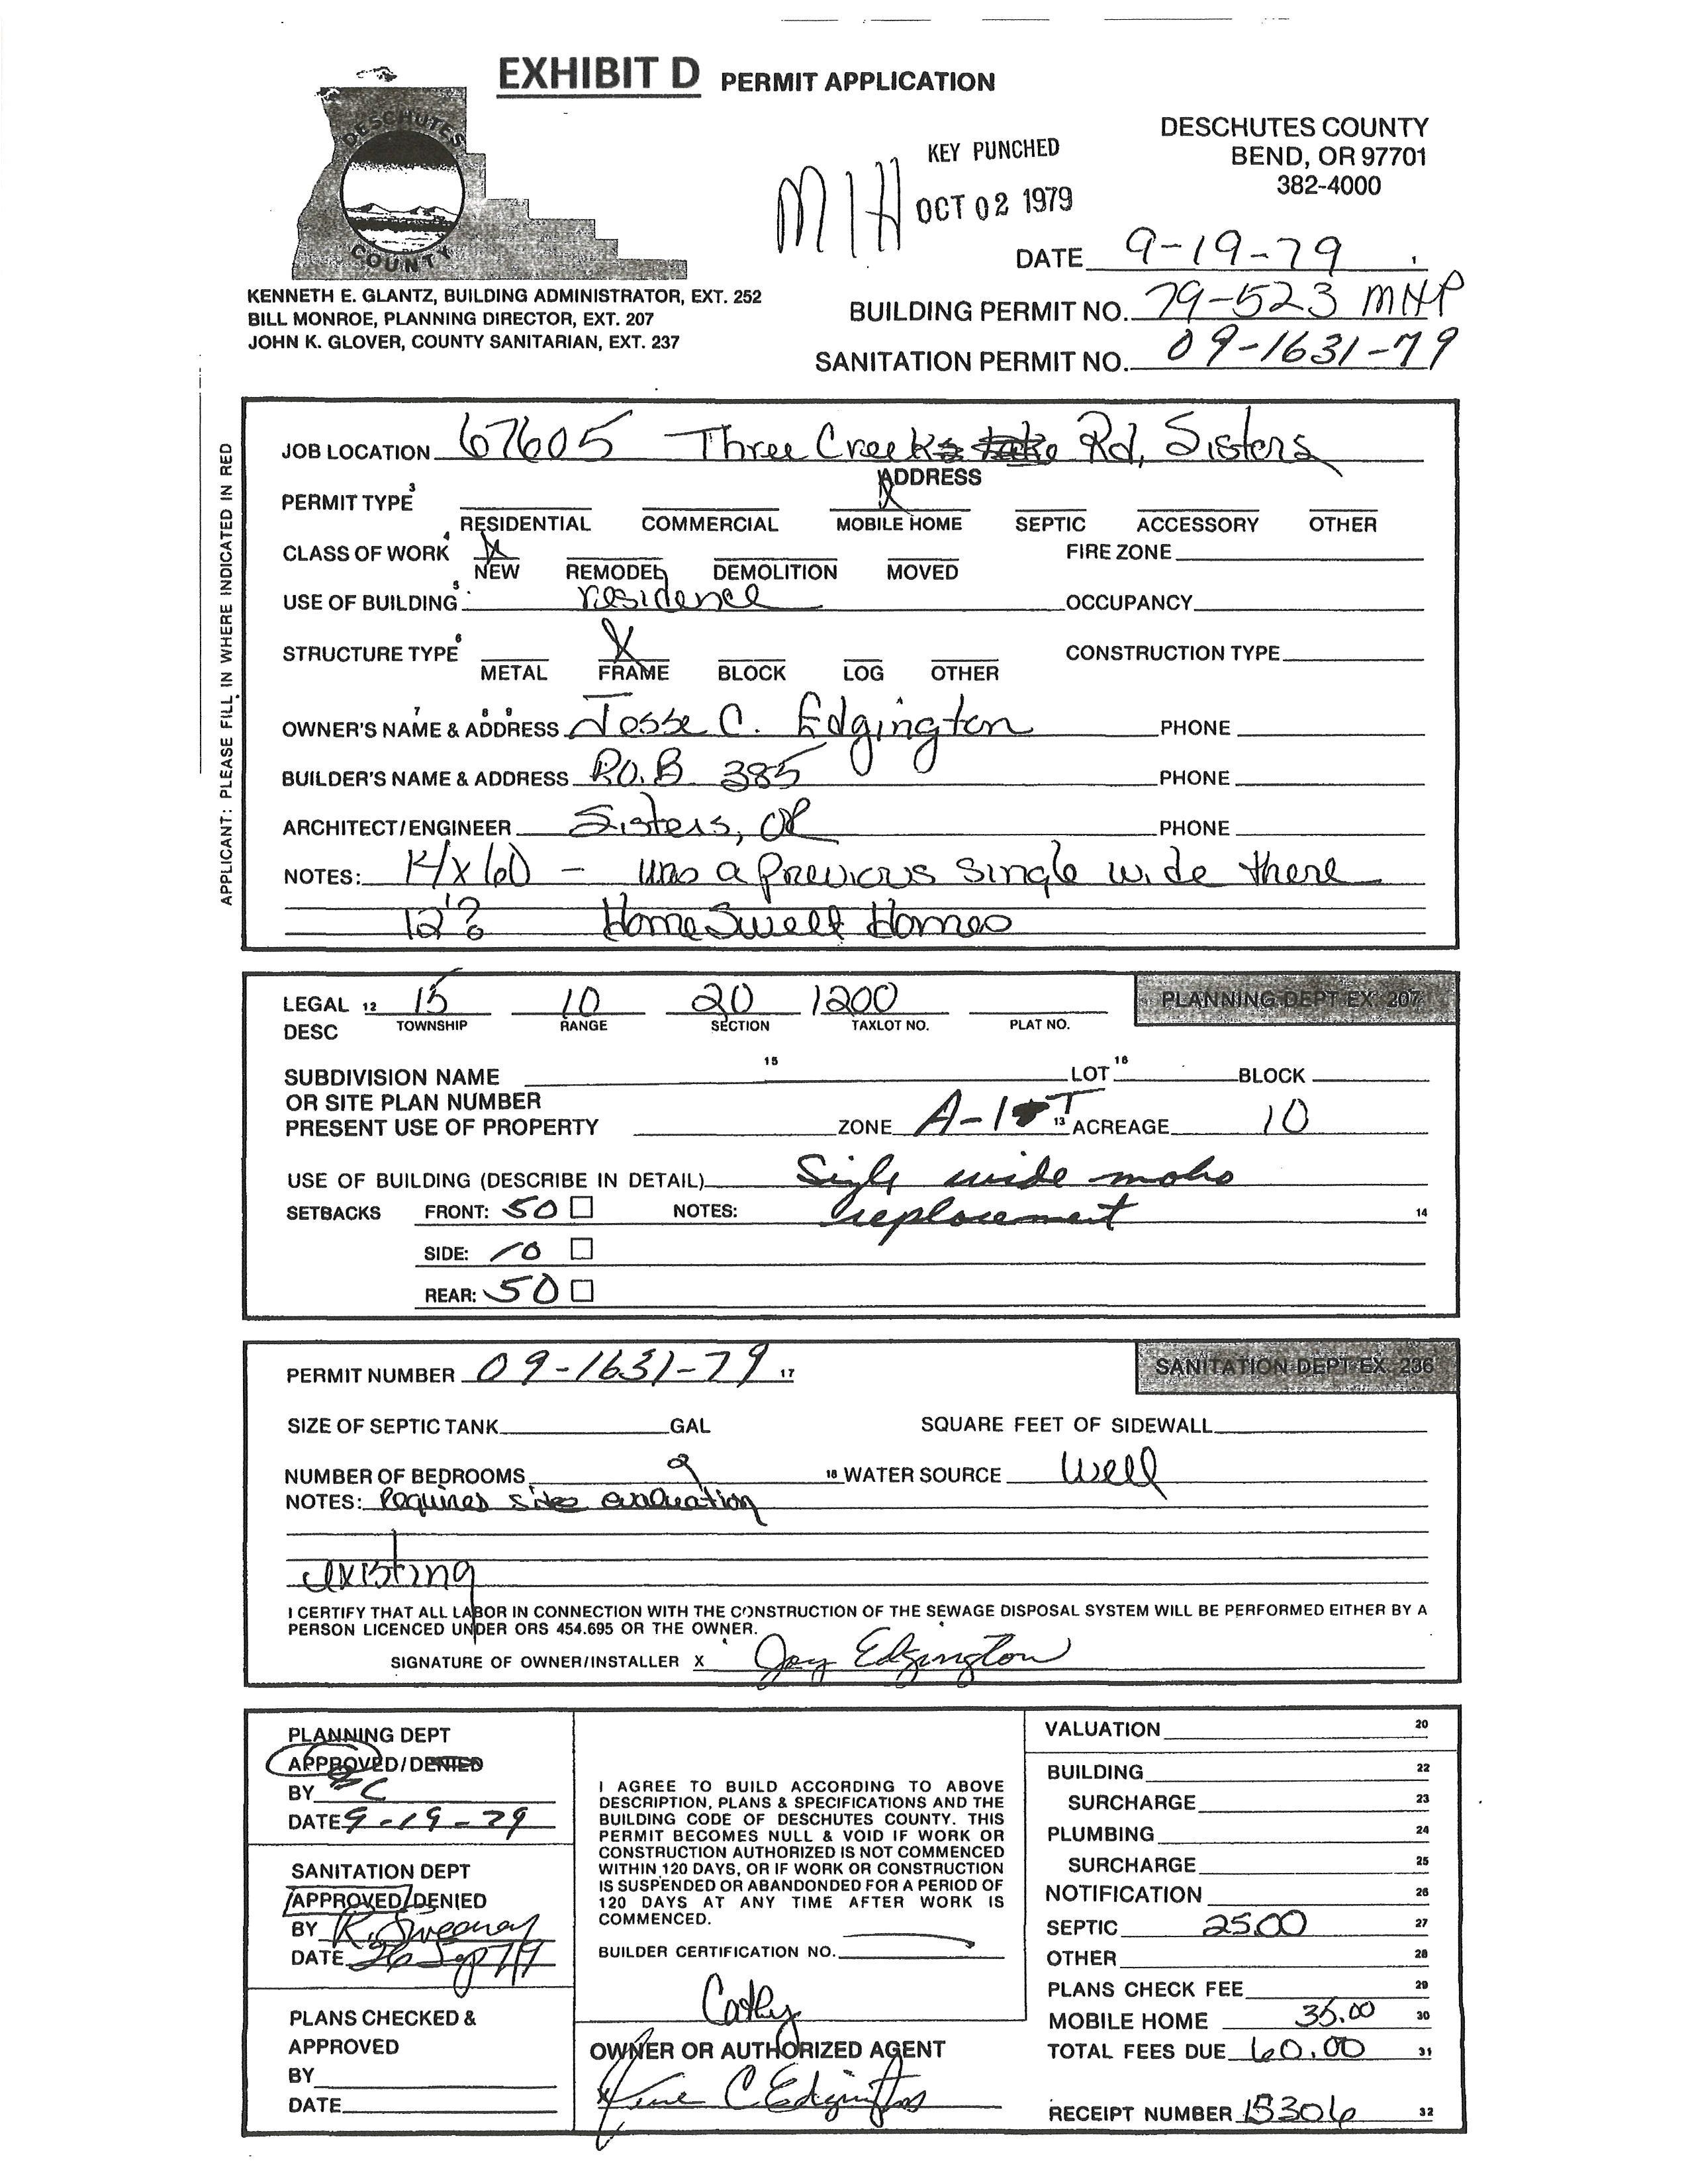 EXHIBIT D PERMIT APPLICATION
DESCHUTES COUNTY
DESCHUTES COUNTY
BEND, OR 97701
382-4000
KEY PUNCHED
MH OCT 02 1979
DATE 9-19-79 1
KENNETH E. GLANTZ, BUILDING ADMINISTRATOR, EXT. 252
BILL MONROE, PLANNING DIRECTOR, EXT. 207
JOHN K. GLOVER, COUNTY SANITARIAN, EXT. 237
BUILDING PERMIT NO. 79-523 MHP
SANITATION PERMIT NO. 09-1631-79
APPLICANT: PLEASE FILL IN WHERE INDICATED IN RED
JOB LOCATION 67605 Three Creeks Lake Rd, Sisters
ADDRESS
PERMIT TYPE 3 X
RESIDENTIAL COMMERCIAL MOBILE HOME SEPTIC ACCESSORY OTHER
CLASS OF WORK 4 X FIRE ZONE
NEW REMODEL DEMOLITION MOVED
USE OF BUILDING 5 residence OCCUPANCY
STRUCTURE TYPE 6 X CONSTRUCTION TYPE
METAL FRAME BLOCK LOG OTHER
OWNER'S NAME & ADDRESS 7 8 9 Jesse C. Edgington PHONE
BUILDER'S NAME & ADDRESS P.O.B 385 PHONE
ARCHITECT/ENGINEER Sisters, OR PHONE
NOTES: 14x60 - was a previous single wide there
12'? Home Sweet Homes
LEGAL 12 15 10 20 1200 PLANNING DEPT EX. 207
DESC TOWNSHIP RANGE SECTION TAXLOT NO. PLAT NO.
SUBDIVISION NAME 15 LOT 16 BLOCK
OR SITE PLAN NUMBER
PRESENT USE OF PROPERTY ZONE A-1 T 13 ACREAGE 10
USE OF BUILDING (DESCRIBE IN DETAIL) Single wide mobo
SETBACKS FRONT: 50 NOTES: replacement 14
SIDE: 10
REAR: 50
PERMIT NUMBER 09-1631-79 17 SANITATION DEPT EX. 236
SIZE OF SEPTIC TANK GAL SQUARE FEET OF SIDEWALL
NUMBER OF BEDROOMS 2 18 WATER SOURCE Well
NOTES: Requires site evaluation
existing
I CERTIFY THAT ALL LABOR IN CONNECTION WITH THE CONSTRUCTION OF THE SEWAGE DISPOSAL SYSTEM WILL BE PERFORMED EITHER BY A
PERSON LICENCED UNDER ORS 454.695 OR THE OWNER.
SIGNATURE OF OWNER/INSTALLER X Joy Edgington
PLANNING DEPT
APPROVED/DENIED
BY C
DATE 9-19-79
SANITATION DEPT
APPROVED/DENIED
BY R. Sweeney
DATE 26 Sep 79
PLANS CHECKED &
APPROVED
BY
DATE
I AGREE TO BUILD ACCORDING TO ABOVE
DESCRIPTION, PLANS & SPECIFICATIONS AND THE
BUILDING CODE OF DESCHUTES COUNTY. THIS
PERMIT BECOMES NULL & VOID IF WORK OR
CONSTRUCTION AUTHORIZED IS NOT COMMENCED
WITHIN 120 DAYS, OR IF WORK OR CONSTRUCTION
IS SUSPENDED OR ABANDONDED FOR A PERIOD OF
120 DAYS AT ANY TIME AFTER WORK IS
COMMENCED.
BUILDER CERTIFICATION NO.
Cathy
OWNER OR AUTHORIZED AGENT
C Edgington
VALUATION 20
BUILDING 22
SURCHARGE 23
PLUMBING 24
SURCHARGE 25
NOTIFICATION 26
SEPTIC 25.00 27
OTHER 28
PLANS CHECK FEE 29
MOBILE HOME 35.00 30
TOTAL FEES DUE 60.00 31
RECEIPT NUMBER 15306 32